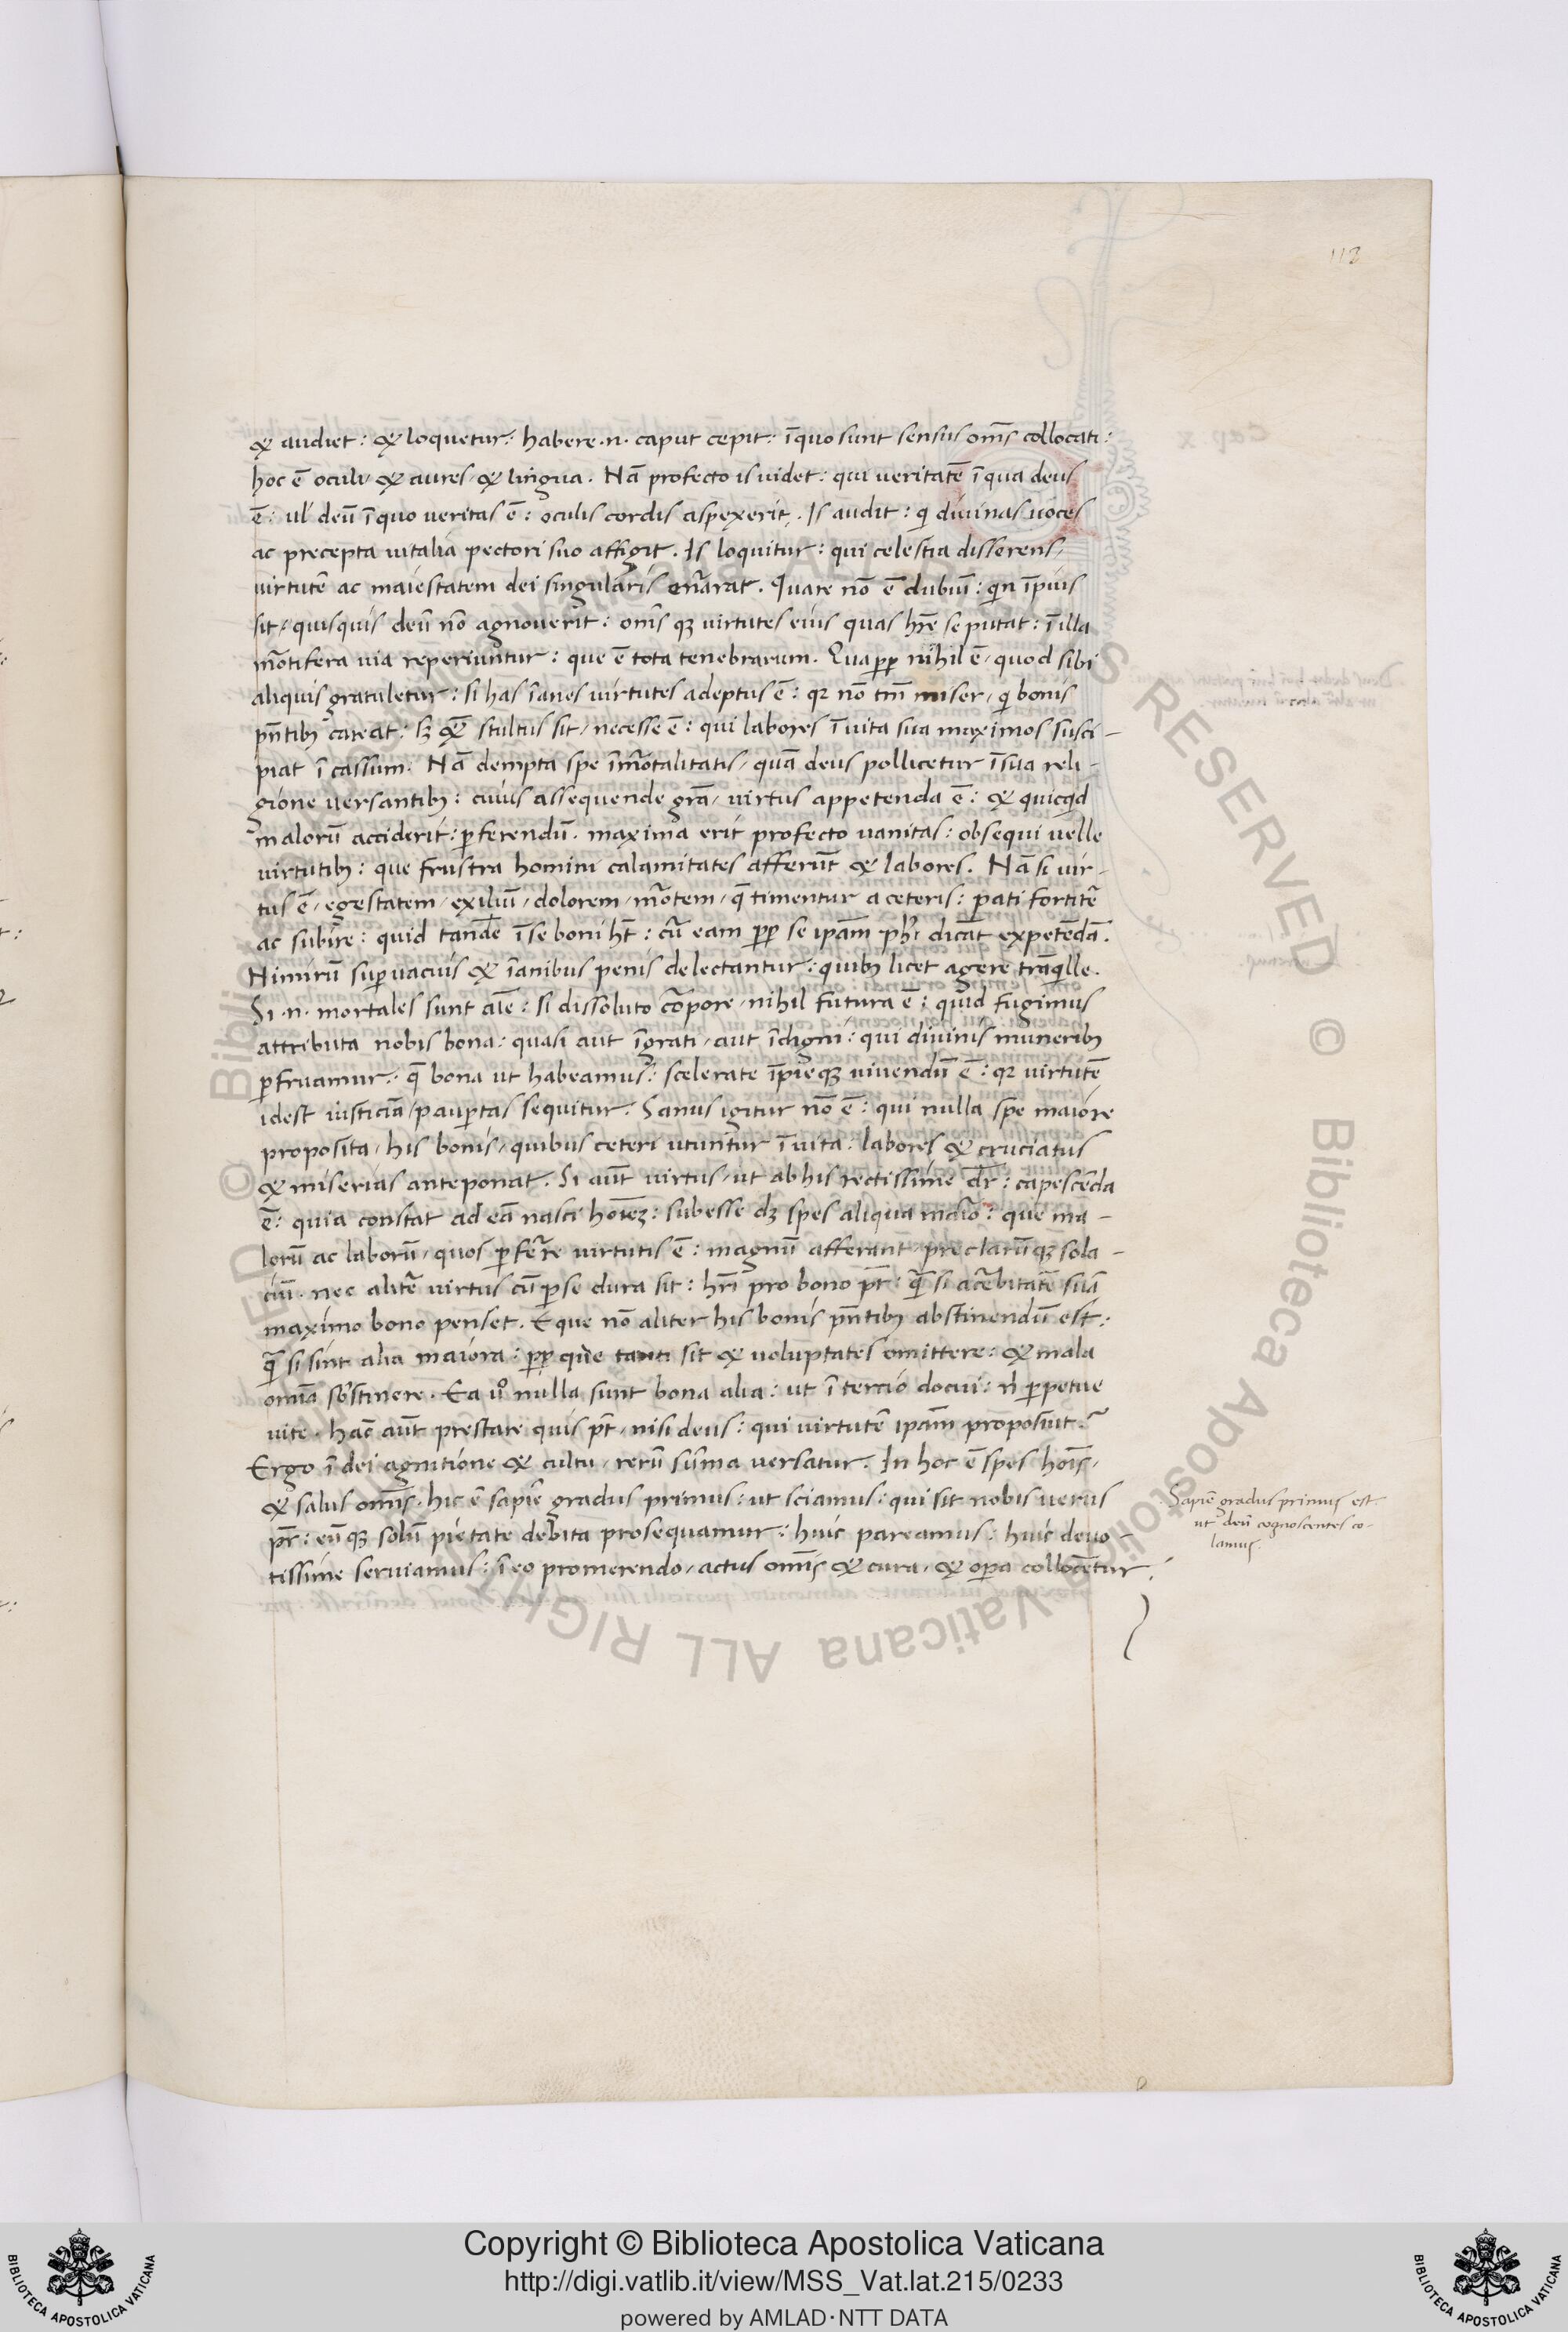 112
& audiet: & loquetur: habere .n. caput cepit: ī quo sunt sensus om̄s collocati:
hoc ē oculi & aures & lingua. Nā profecto is videt: qui veritatē ī qua deus
ē: ul' deū ī quo veritas ē: oculis cordis aspexerit. Is audit: qi divinas voces
ac precepta vitalia pectori suo affigit. Is loquitur: qui celestia disserens,
virtutē ac maiestatem dei singularis enarrat. Quare nō ē dubiū: qin īpius
sit, quisquis deū nō agnoverit: om̄s qȝ virtutes eius quas hr̄e se putat: ī illa
mortifera via reperiuntur: que ē tota tenebrarum. Quapp nihil ē, quod sibi
aliquis gratuletur: si has īanes virtutes adeptus ē: qr nō tm̄ miser, qi bonis
pn̄tibȝ careat: sȝ & stultus sit, necesse ē: qui labores ī vita sua maximos susci-
piat ī cassum. Nā dempta spe īmortalitatis, quā deus pollicetur ī sua reli-
gione versantibȝ: cuius assequende gr̄a, virtus appetenda ē: & quicqid
malorū acciderit: pferendū. maxima erit profecto vanitas: obsequi velle
virtutibȝ: que frustra homini calamitates afferūt & labores. Nā si vir-
tus ē, egestatem, exiliū, dolorem, mortem, q̄ timentur a ceteris: pati fortit̄
ac subire: quid tandē ī se boni ht̄: cū eam pp se ipam phi dicāt expetēdā.
Nimirū supvacuis & īanibus penis delectantur: quibȝ licet agere trāqille.
Si .n. mortales sunt aīe: si dissoluto corpore, nihil futura ē: quid fugimus
attributa nobis bona: quasi aut īgrati, aut īdigni: qui divinis muneribȝ
pfruamur: q̄ bona ut habeamus: scelerate īpieqȝ vivendū ē: qr virtutē
idest iusticiā, pauptas sequitur. Sanus igitur nō ē: qui nulla spe maiore
proposita, his bonis, quibus ceteri utuntur ī vita: labores & cruciatus
& miserias anteponat. Si aūt virtus, ut ab his rectissime dr̄: capescēda
ē: quia constat ad eā nasci hoīeȝ: subesse dȝ spes aliqua maior: que ma-
lorū ac laborū, quos pferre virtutis ē: magnū afferant preclarūqȝ sola-
ciū. nec alit̄ virtus cū p se dura sit: hr̄i pro bono pt̄: q̄ si acerbitatē suā
maximo bono penset. Eque nō aliter his bonis pn̄tibȝ abstinendū est:
q̄ si sint alia maiora: pp que tanti sit & voluptates omittere: & mala
omīa sustinere. Ea vº nulla sunt bona alia: ut ī tercio docui: n' ppetue
vite. hāc aūt prestare quis pt̄, nisi deus: qui virtutē ipam proposuit?
Ergo ī dei agnitione & cultu, rerū sūma versatur. In hoc ē spes hoīs,
& salus om̄is. hic ē sapiē gradus primus: ut sciamus: qui sit nobis verus
pr̄: eūqȝ solū pietate debita prosequamur: huic pareamus: huic devo-
tissime serviamus: ī eo promerendo, actus om̄is & cura, & opa collocētur.
Sapiē gradus primus est
ut deū cognoscentes co-
lamus.
Copyright © Biblioteca Apostolica Vaticana
http://digi.vatlib.it/view/MSS_Vat.lat.215/0233
powered by AMLAD·NTT DATA
BIBLIOTECA APOSTOLICA VATICANA
BIBLIOTECA APOSTOLICA VATICANA